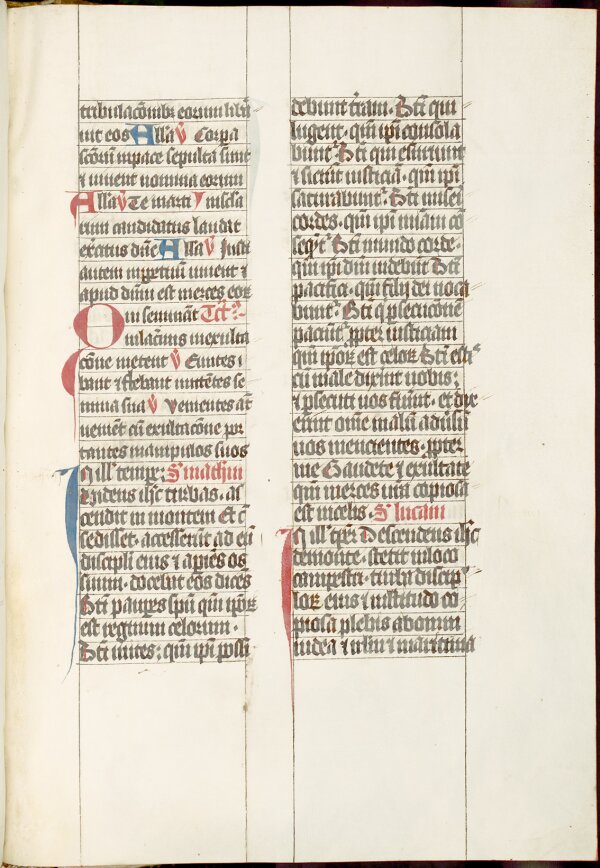 tribulac̄oıƀȝ eorum lib̄a
uit eos Alla ꝟ Corpa
sc̄orū in pace sepulta sunt
⁊ uiuent nomina eorum
Alla ꝟ Te marti ꝟ
rum candidatus laudat
ex̄citus dn̄e Alla ꝟ Justi
autem in ꝑpetuū uiuent ⁊
apud dnm̄ est merces eoꝝ
Qui semināt Tct⁹
in lac̄mis in exulta
c̄one metent ꝟ Euntes i
bant ⁊ flebant mittētes se
mina sua ꝟ Venientes āt
ueniēt cū exultac̄one por
tantes manipulos suos
In ill̄ tempe; S matħm
Videns ih̄c turbas. as
cendit in montem Et c̄
sedisset. accesserūt ad eū
discipl̄i eius ⁊ apiēs os
suum. docebat eos dicēs
Bt̄i pauꝑes spū qm̄ ip̄oꝝ
est regnum celorum.
Bt̄i mites; qm̄ ip̄i possi
debunt t̄ram. Bt̄i qui
lugent. qm̄ ip̄i consola
bunt᷑ Bt̄i qui esuriunt
⁊ sitiūt iusticiā. qm̄ ip̄i
saturabunt᷑. Bt̄i miseri
cordes. qm̄ ip̄i mīam cō
seqn̄t᷑ Bt̄i mundo corde.
qm̄ ip̄i dm̄ uidebūt Bt̄i
pacifici. qm̄ filij dei uoca
bunt᷑. Bt̄i q̄ ꝑsecucionē
paciūt᷑ ꝓpter iusticiam
qm̄ ip̄oꝝ est celoꝝ Bt̄i esti⁹
cū male dixint uobis;
⁊ ꝑsecuti uos fūint. et dix̄
erint om̄e malū aduersū
uos mencientes. ꝓpter
me Gaudete ⁊ exultate
qm̄ merces ur̄a copiosa
est in celis. S lucam
In ill̄ tꝑe; Descendens ih̄c
de monte. stetit in loco
campestri. turba discip̄
loꝝ eius ⁊ m̄ltitudo co
piosa plebis ab omni
iudea ⁊ irl̄m ⁊ maritima